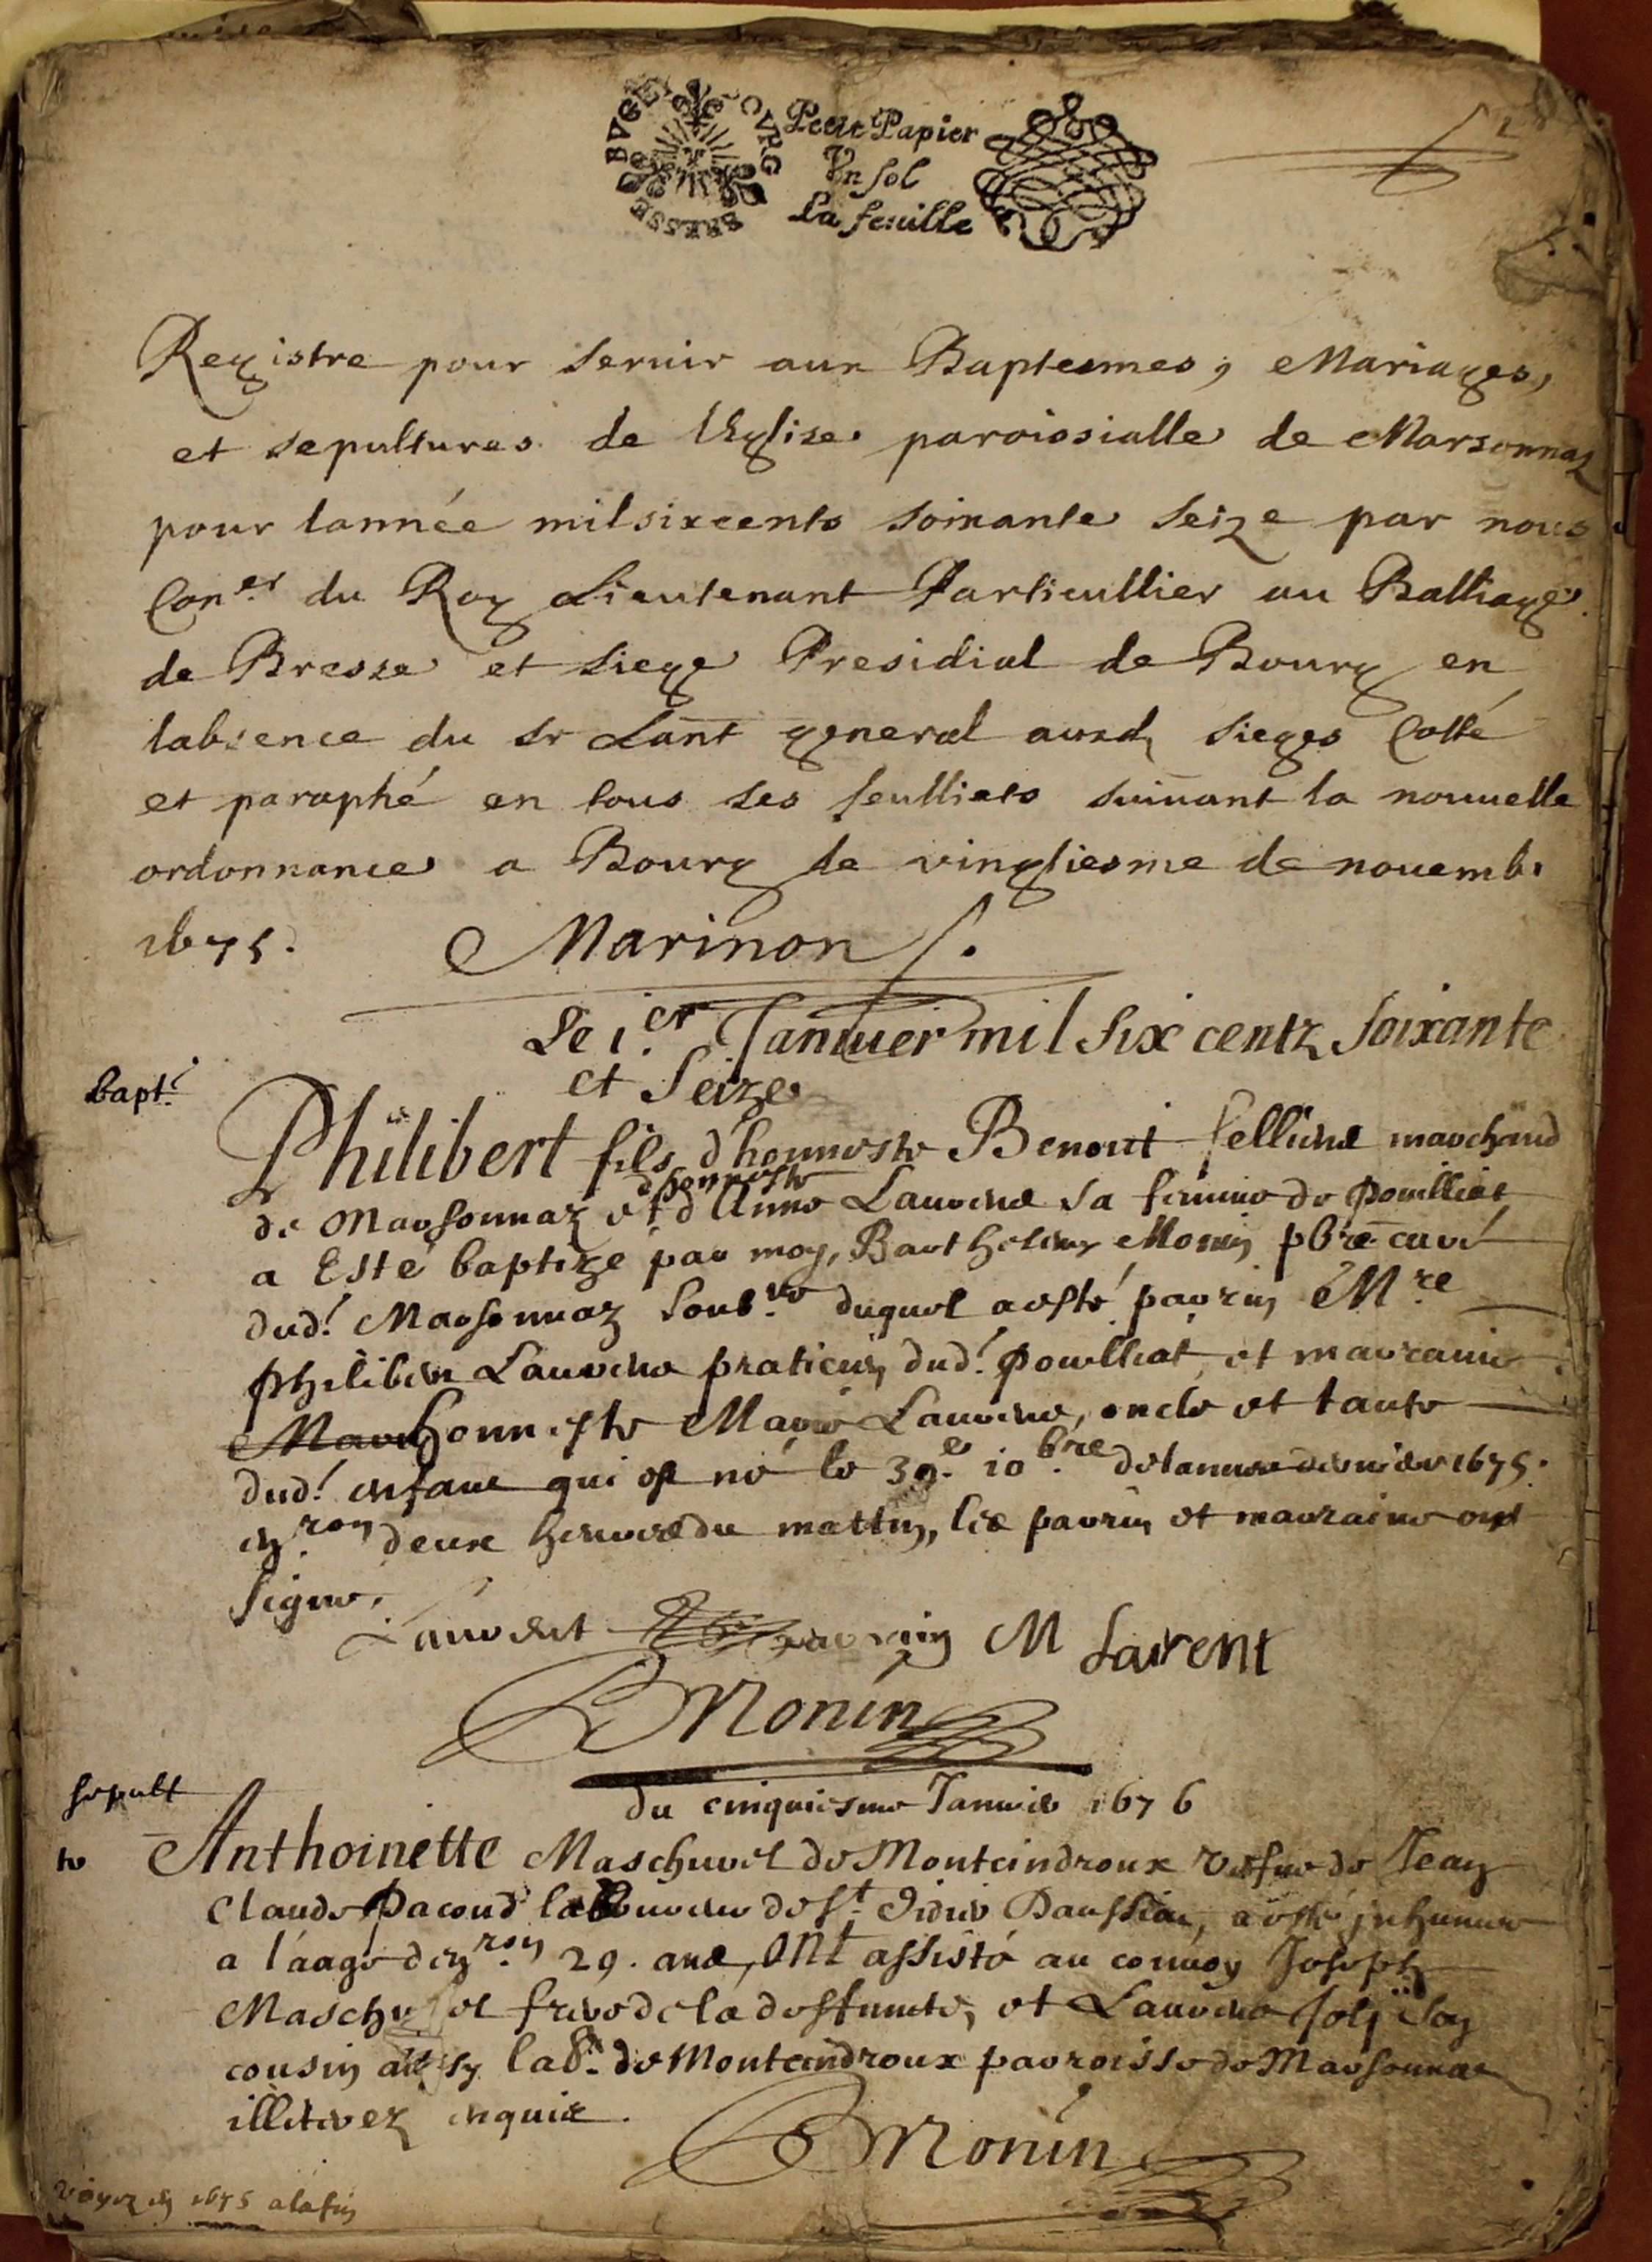 BRESSE BVGEY
Petit Papier
Vn sol
La feuille
Registre pour seruir aux Baptesmes, Mariages,
et sepultures de l'Eglise paroissialle de Marsonnaz
pour lannée mil sixcents soixante seize par nous
Con.er du Roy Lieutenant Particullier au Balliage
de Bresse et siege Presidial de Bourg en
labsence du sr Lant general ausd. sieges Cotté
et paraphé en tous ses feulliets suiuant la nouuelle
ordonnance a Bourg le vingtiesme de nouemb.
1675. Marinon
Le 1.er Januier mil six centz soixante
et seize
bapt.
Philibert fils d'honneste Benoit marchand
d'honneste
de Marsonnaz et d'Anne Laurens sa femme de Pouilliat
a Esté baptizé par moy, Barthelemy Monin pbre curé
dud.t Marsonnaz soub.né duquel a esté parrin M.re
Philibert Laurens praticien dud.t Pouilliat et marraine
honneste Marie Laurens, oncle et tante
dud.t enfant qui est né le 30.e 10.bre de lannée derniere 1675.
en.ron deux heures du mattin, les parrin et marraine ont
signé.
Laurent parrin M Laurent
BMonin
sepult
du cinquiesme Januier 1676
Anthoinette Maschurel de Monteindroux vefue de Jean
Claude Pacoud laboureur de St Didier Daussiat, a esté inhumée
a l'aage d'en.ron 29. ans, ONt assisté au conuoy Joseph
frere de la deffuncte, et Laurens Joly son
cousin aussy lab.r de Monteindroux parroisse de Marsonnas
illiterez enquis.
BMonin
voyez en 1675 a la fin